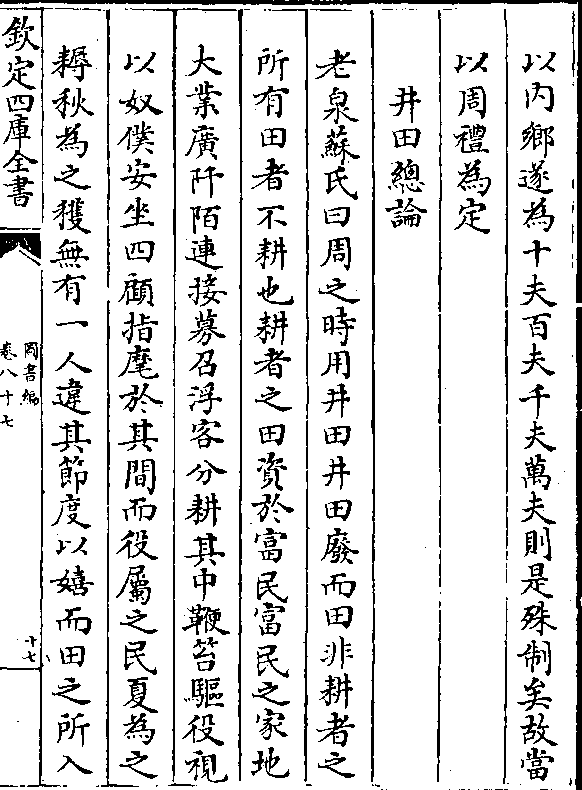 以内鄉遂為十夫百夫千夫萬夫則是殊制矣故當
以周禮為定
井田總論
老泉蘇氏曰周之時用井田井田廢而田非耕者之
所有田者不耕也耕者之田資於富民富民之家地
大業廣阡陌連接募召浮客分耕其中鞭笞驅役視
以奴僕安坐四顧指麾於其間而役屬之民夏為之
耨秋為之穫無有一人違其節度以嬉而田之所入
欽定四庫全書
圖書編
卷八十七
十七